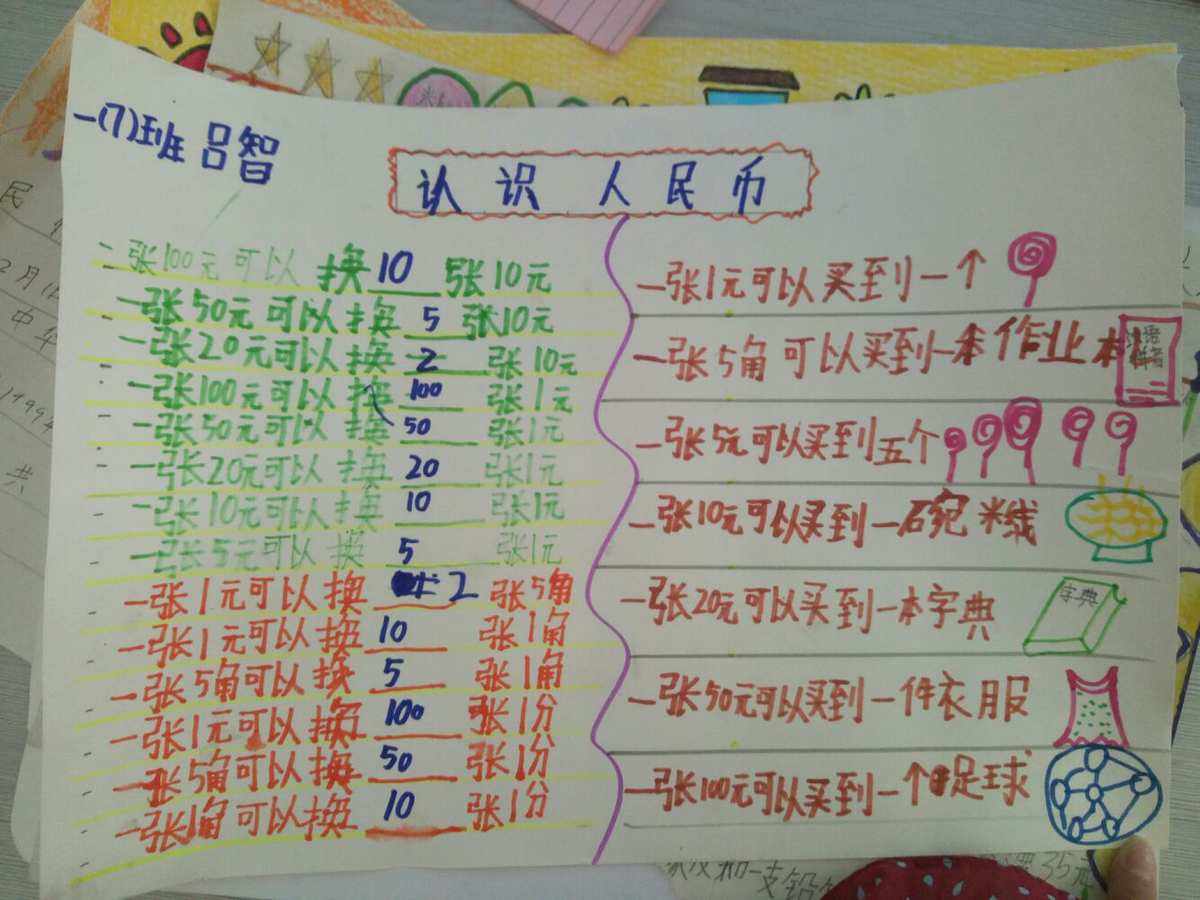 一(7)班 吕智
认识人民币
一张100元可以换10张10元
一张50元可以换5张10元
一张20元可以换2张10元
一张100元可以换100张1元
一张50元可以换50张1元
一张20元可以换20张1元
一张10元可以换10张1元
一张5元可以换5张1元
一张1元可以换2张5角
一张1元可以换10张1角
一张5角可以换5张1角
一张1元可以换100张1分
一张5角可以换50张1分
一张1角可以换10张1分
一张1元可以买到一个
一张5角可以买到一本作业本
一张5元可以买到五个
一张10元可以买到一碗米线
一张20元可以买到一本字典
字典
一张50元可以买到一件衣服
一张100元可以买到一个足球
民
2月1
中华
1994
共
和一支铅
35元